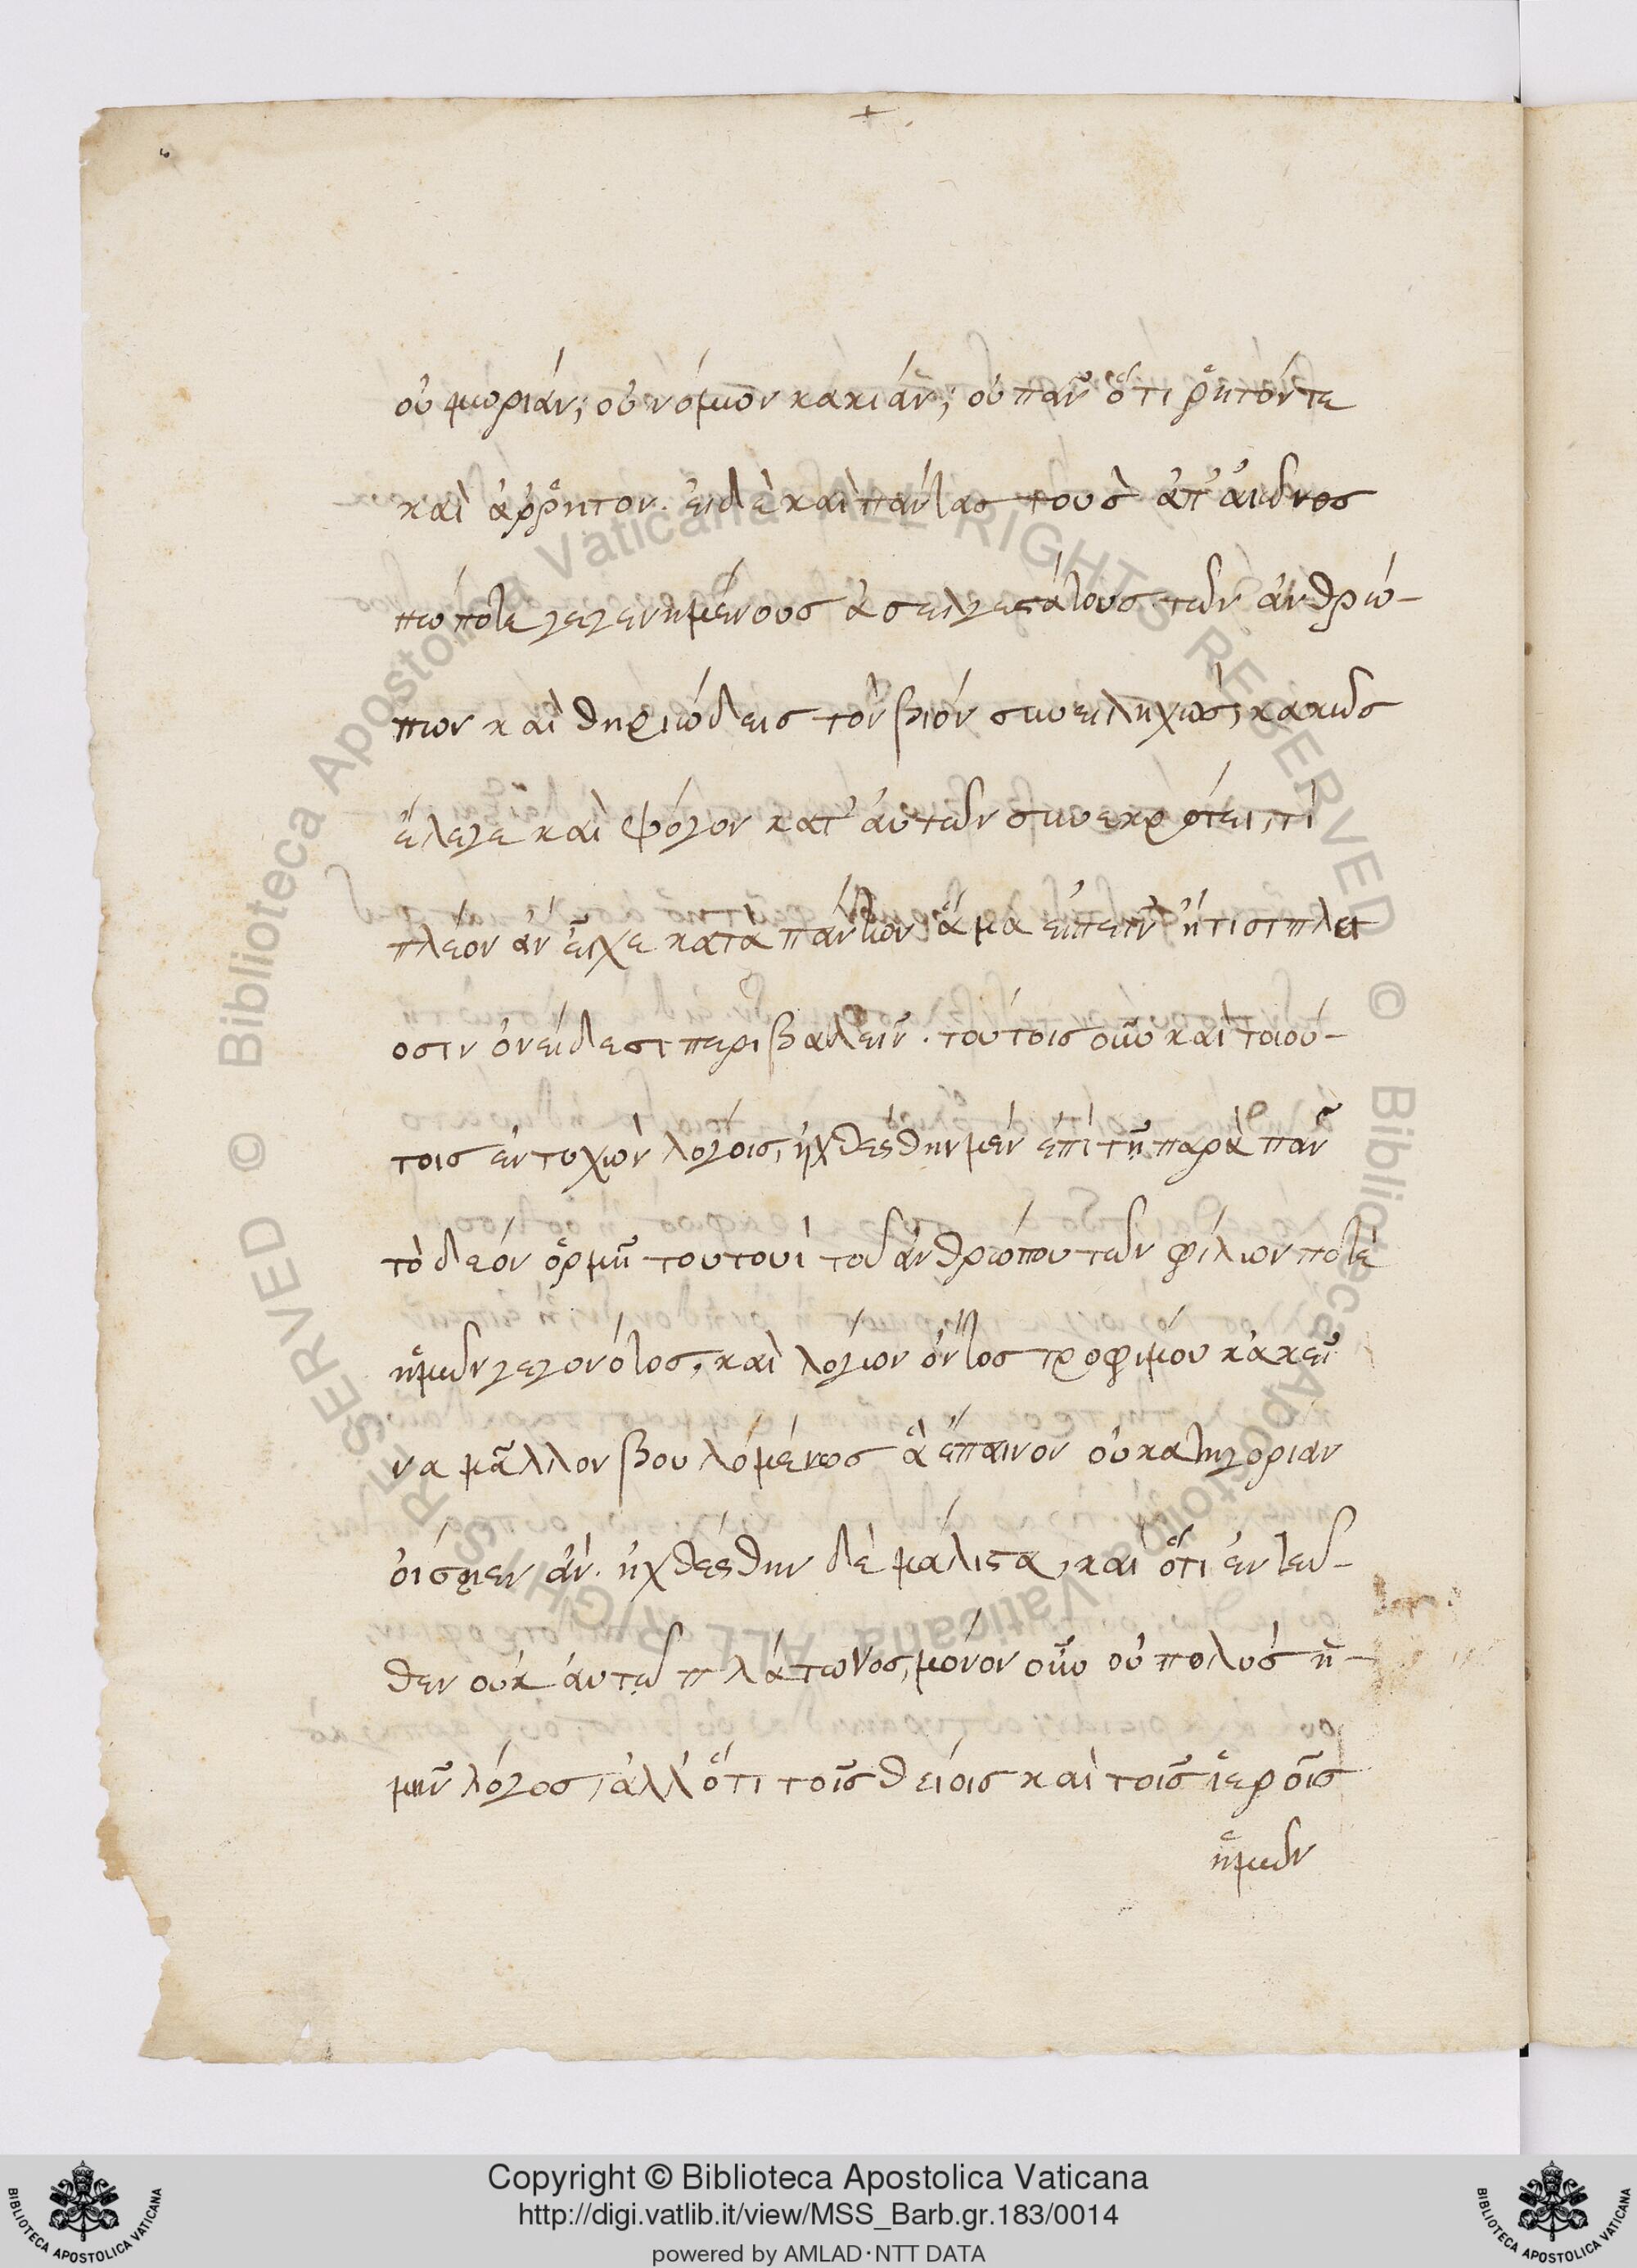 οὐ μωρίαν; οὐ νόμων κακίαν; οὐ πᾶν ὅτι ῥητόν τε
καὶ ἄῤῥητον. εἰ δὲ καὶ πάντας τοὺς ἀπ' αἰῶνος
πώποτε γεγενημένους ἀσελγεστάτους τῶν ἀνθρώ-
πων καὶ θηριώδεις τὸν βίον συνειληχὼς, κακῶς
ἔλεγε καὶ ψόγον κατ' αὐτῶν συνεκρότει, τί
πλέον ἂν εἶχε κατὰ πάντων ἅμα εἰπεῖν ἢ τίσι πλεί
οσιν ὀνείδεσι περιβαλεῖν. τούτοις οὖν καὶ τοιού-
τοις ἐντυχὼν λόγοις, ἠχθέσθην μὲν ἐπὶ τῇ παρὰ πᾶν
τὸ δέον ὁρμῇ τουτουὶ τοῦ ἀνθρώπου τῶν φίλων ποτὲ
ἡμῶν γεγονότος, καὶ λόγων ὄντος τροφίμου κἀκεῖ
να μᾶλλον βουλομένως ἃ ἔπαινον οὐ κατηγορίαν
οἴσειεν ἄν. ἠχθέσθην δὲ μάλιστα, καὶ ὅτι ἐντεῦ-
θεν οὐκ αὐτῷ πλάτωνος, μόνον οὗ οὐ πολὺς ἡ-
μῖν λόγος, ἀλλ' ὅτι τοῖς θείοις καὶ τοῖς ἱεροῖς
ἡμῶν
© Biblioteca Apostolica Vaticana ALL RIGHTS RESERVED
© Biblioteca Apostolica Vaticana ALL RIGHTS RESERVED
Copyright © Biblioteca Apostolica Vaticana
http://digi.vatlib.it/view/MSS_Barb.gr.183/0014
powered by AMLAD·NTT DATA
BIBLIOTECA APOSTOLICA VATICANA
BIBLIOTECA APOSTOLICA VATICANA